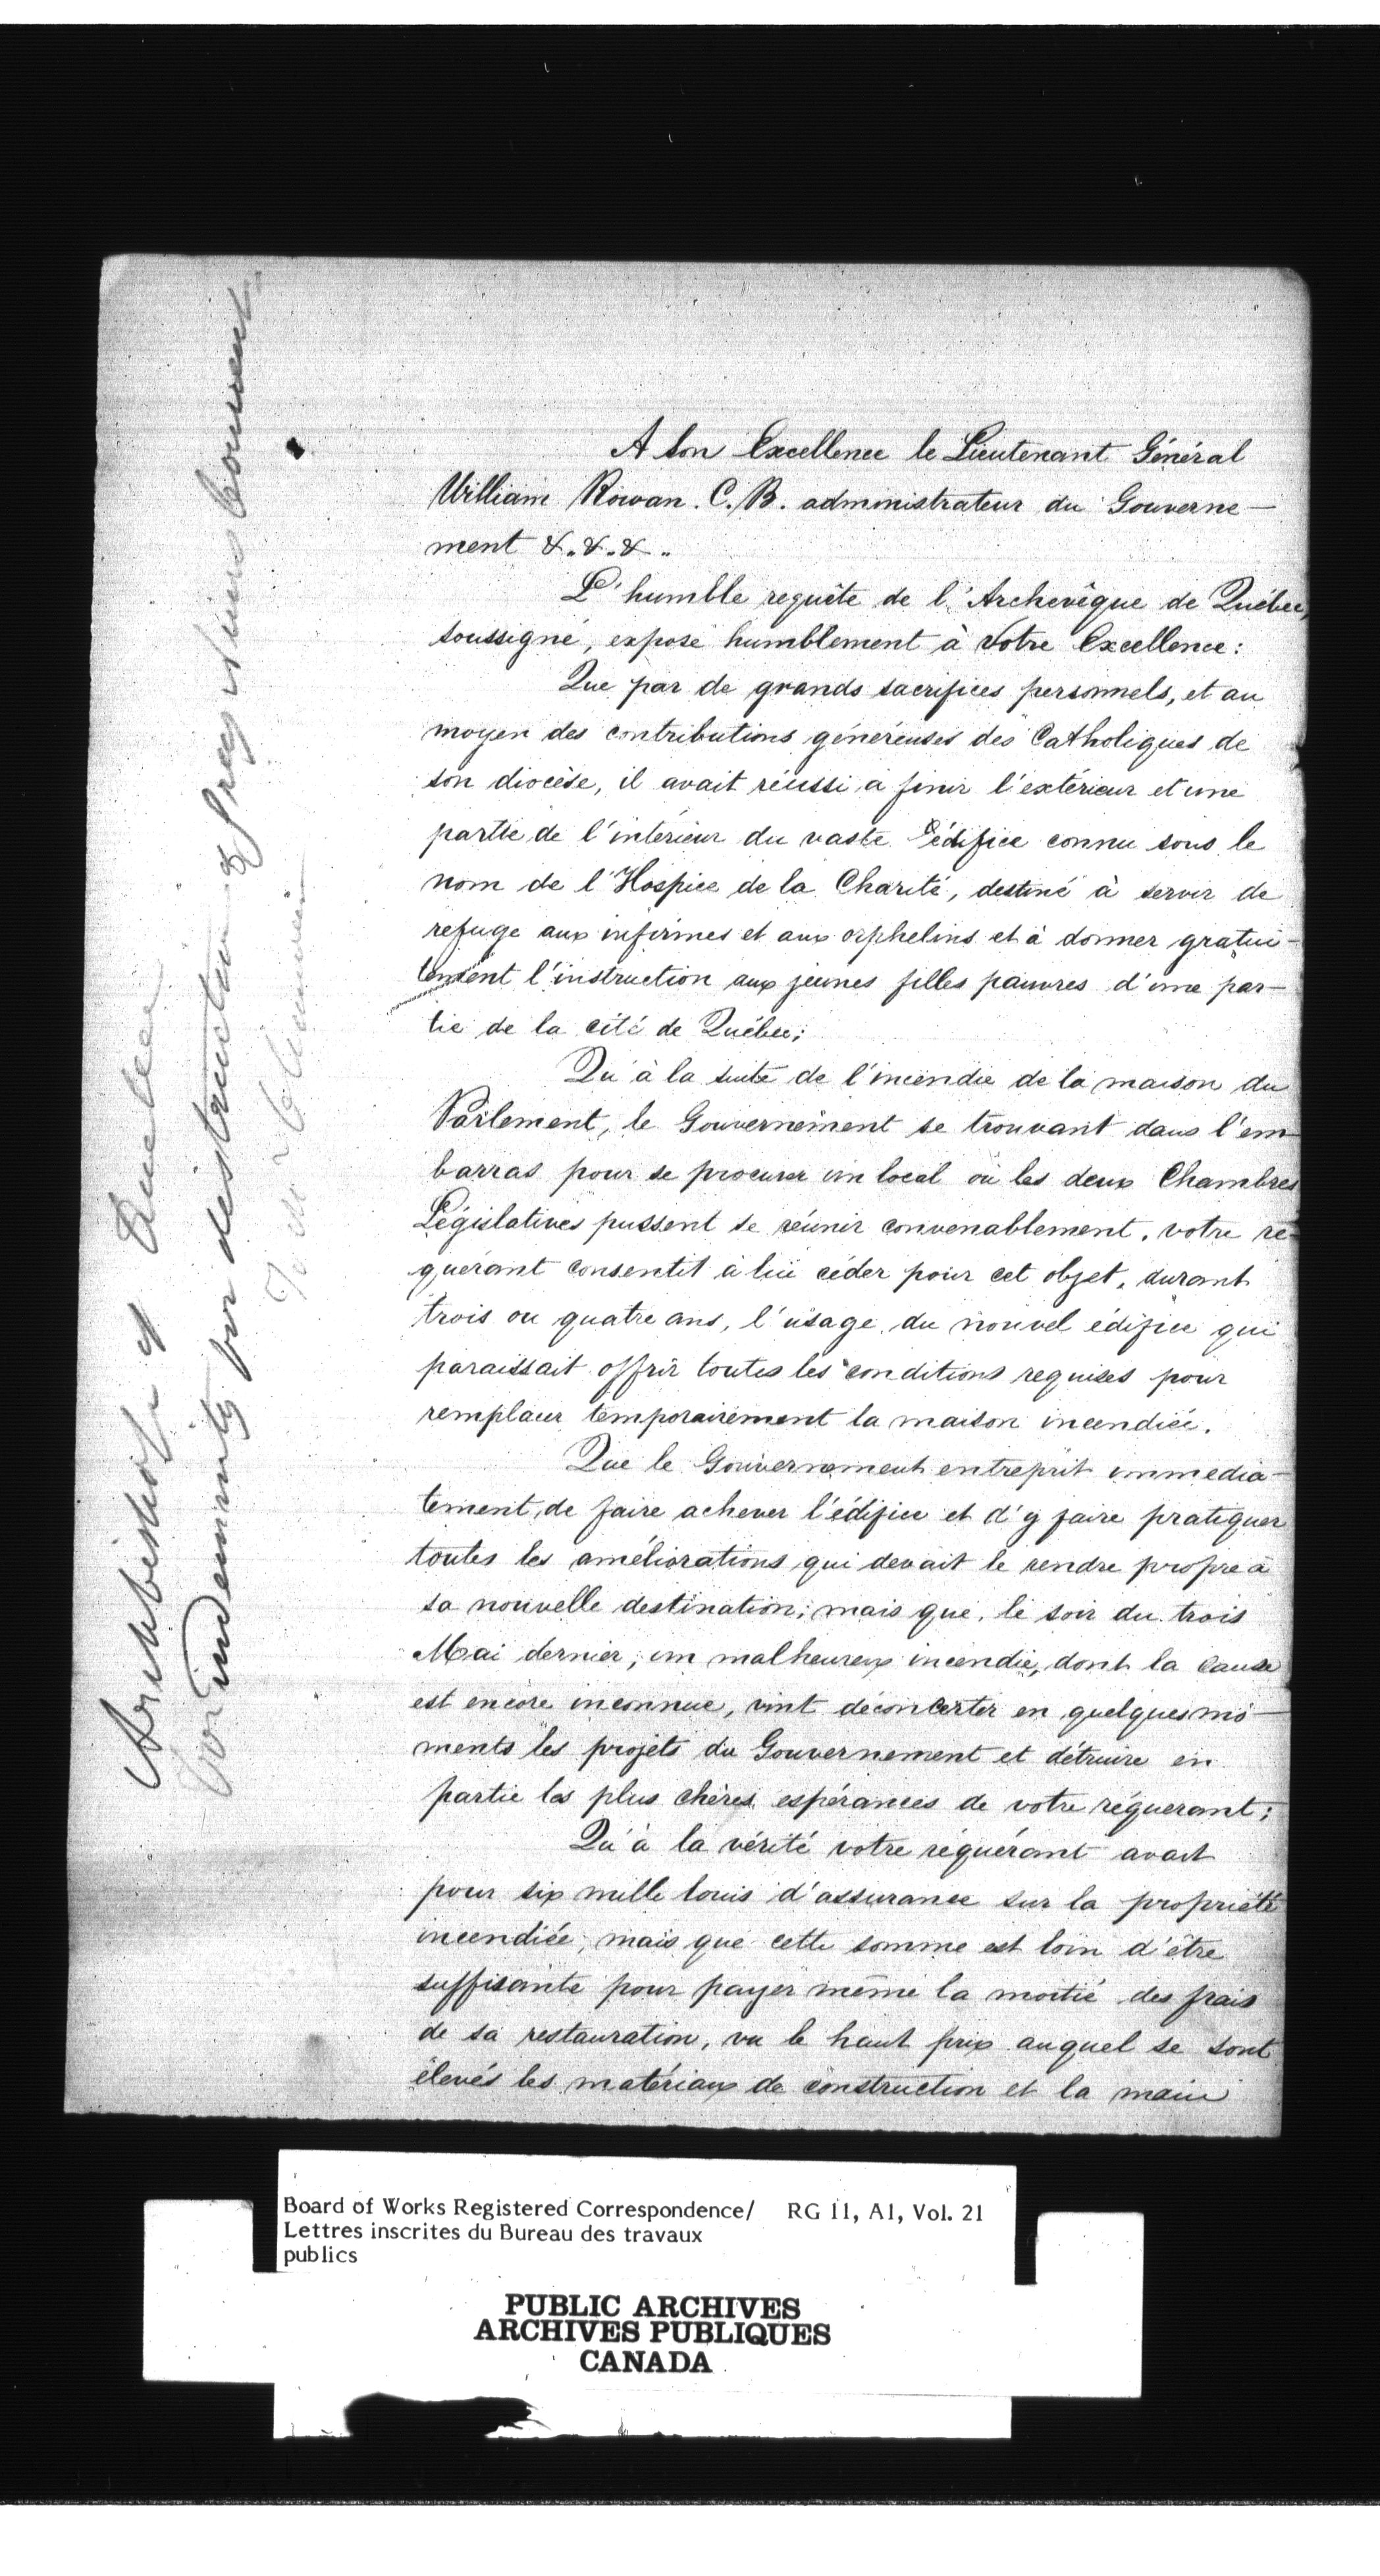 A Son Excellence le Lieutenant Général
William Rowan. C. B. administrateur du Gouverne-
ment &.&.&.
L'humble requête de l'Archevêque de Québec,
soussigné, expose humblement à Votre Excellence:
Que par de grands sacrifices personnels, et au
moyen des contributions généreuses des Catholiques de
son diocèse, il avait réussi à finir l'extérieur et une
partie de l'intérieur du vaste édifice connu sous le
nom de l'Hospice de la Charité, destiné à servir de
refuge aux infirmes et aux orphelins et à donner gratui-
tement l'instruction aux jeunes filles pauvres d'une par-
tie de la cité de Québec;
Qu'à la suite de l'incendie de la maison du
Parlement, le Gouvernement se trouvant dans l'em-
barras pour se procurer un local où les deux Chambres
Législatives pussent se réunir convenablement, votre re-
quérant consentit à lui céder pour cet objet, durant
trois ou quatre ans, l'usage du nouvel édifice qui
paraissait offrir toutes les conditions requises pour
remplacer temporairement la maison incendiée.
Que le Gouvernement entreprit immédia-
tement de faire achever l'édifice et d'y faire pratiquer
toutes les améliorations qui devait le rendre propre à
sa nouvelle destination; mais que, le soir du trois
Mai dernier, un malheureux incendie, dont la cause
est encore inconnue, vint déconcerter en quelques mo-
ments les projets du Gouvernement et détruire en
partie les plus chères espérances de votre réquerant;
Qu'à la vérité votre réquérant avait
pour six mille louis d'assurance sur la propriété
incendiée; mais que cette somme est loin d'être
suffisante pour payer même la moitié des frais
de sa restauration, vu le haut prix auquel se sont
élevés les matériaux de construction et la main
Archbishop of Quebec
for indemnity for destruction of Grey Nuns Convent
Board of Works Registered Correspondence/ RG 11, A1, Vol. 21
Lettres inscrites du Bureau des travaux
publics
PUBLIC ARCHIVES
ARCHIVES PUBLIQUES
CANADA